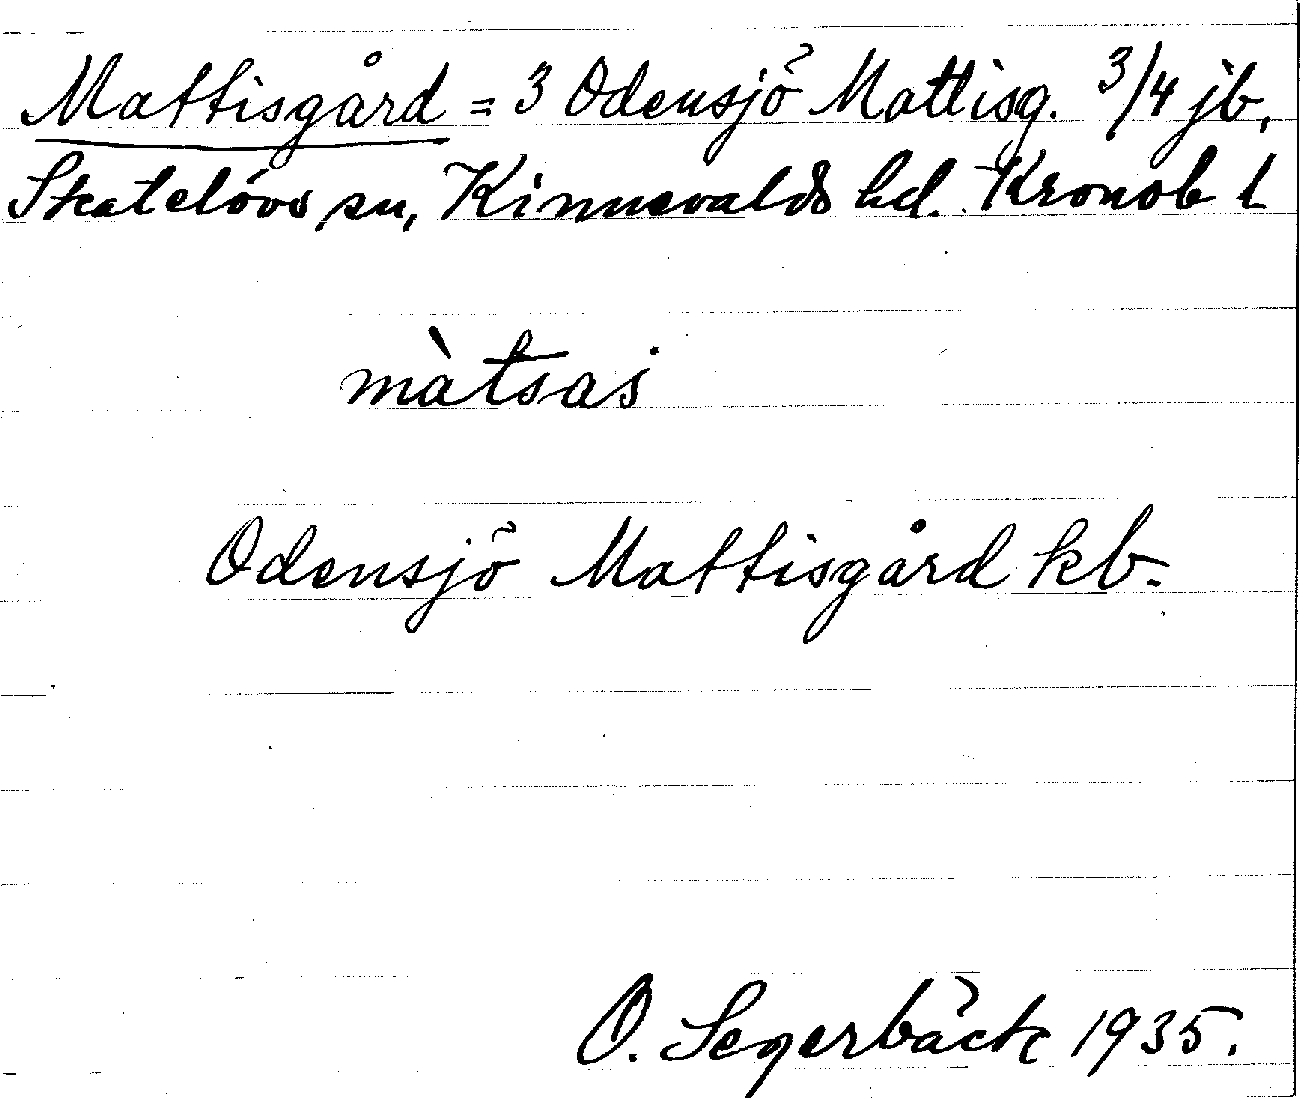 Mattisgård = 3 Odensjö Mattisg. 3/4 jb,
Skatelövs sn, Kinnevalds hd. Kronob l
màtsas
Odensjö Mattisgård kb.
O. Segerbäck 1935.